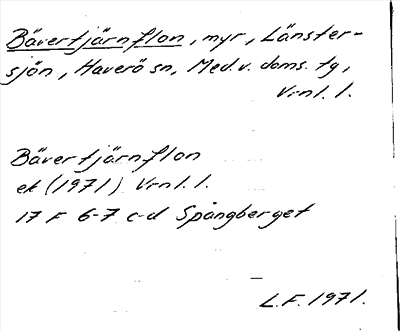 Bävertjärnflon, myr, Länster-
sjön, Haverö sn, Med.v. doms. tg,
Vrnl. l.
Bävertjärnflon
ek (1971) Vrnl. l.
17 F 6-7 c-d Spångberget
L.F. 1971.